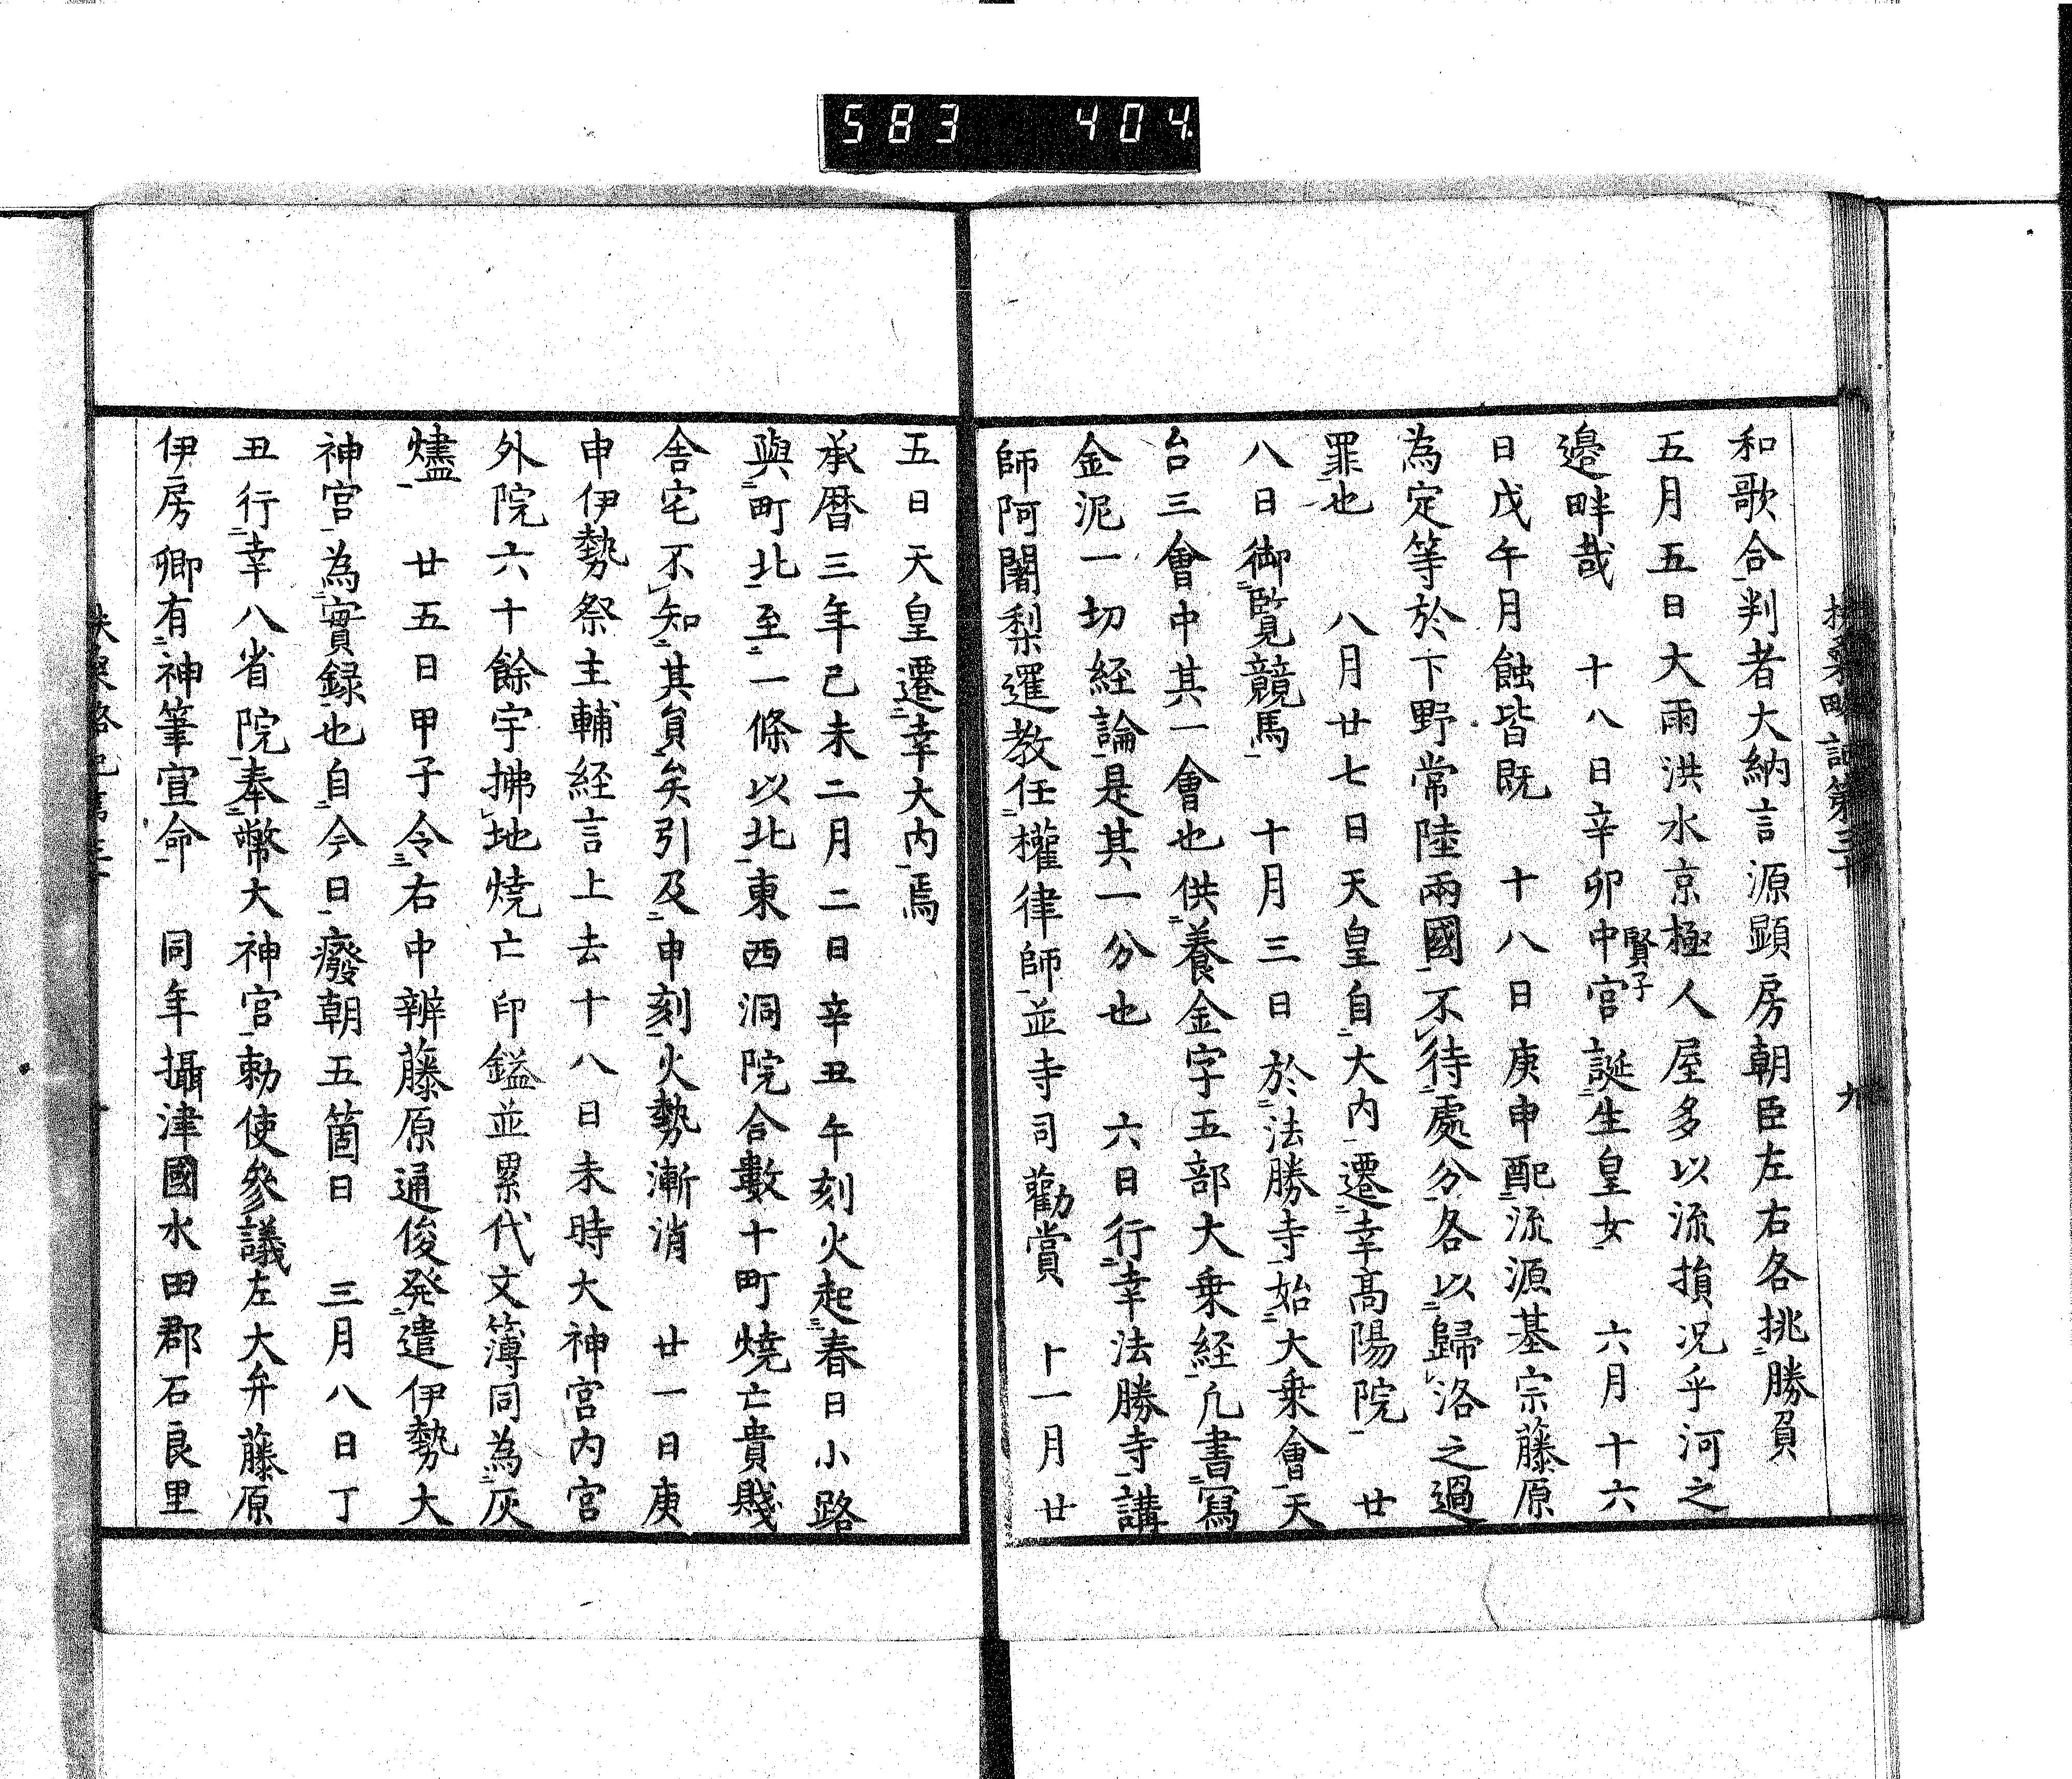 583 404
和歌合判者大納言源顕房朝臣左右各挑勝負
五月五日大雨洪水京極人屋多以流損况乎河之
邉畔哉 十八日辛卯中宮賢子誕生皇女 六月十六
日戊午月蝕皆既 十八日庚申配流源基宗藤原
為定等於下野常陸兩國不待處分各以歸洛之過
罪也 八月廿七日天皇自大内遷幸髙陽院 廿
八日御覧競馬 十月三日於法勝寺始大乗會天
台三會中其一會也供養金字五部大乗経凢書寫
金泥一切経論是其一分也 六日行幸法勝寺講
師阿闍梨暹教任權律師並寺司勸賞 十一月廿
五日天皇遷幸大内焉
承暦三年己未二月二日辛丑午刻火起春日小路
與町北至一條以北東西洞院合數十町焼亡貴賤
舎宅不知其負矣引及申刻火勢漸消 廿一日庚
申伊勢祭主輔経言上去十八日未時大神宮内宮
外院六十餘宇拂地焼亡印鎰並累代文簿同為灰
燼 廿五日甲子令右中辨藤原通俊発遣伊勢大
神宮為實録也自今日癈朝五箇日 三月八日丁
丑行幸八省院奉幣大神宮勅使參議左大弁藤原
伊房卿有神筆宣命 同年攝津國水田郡石良里